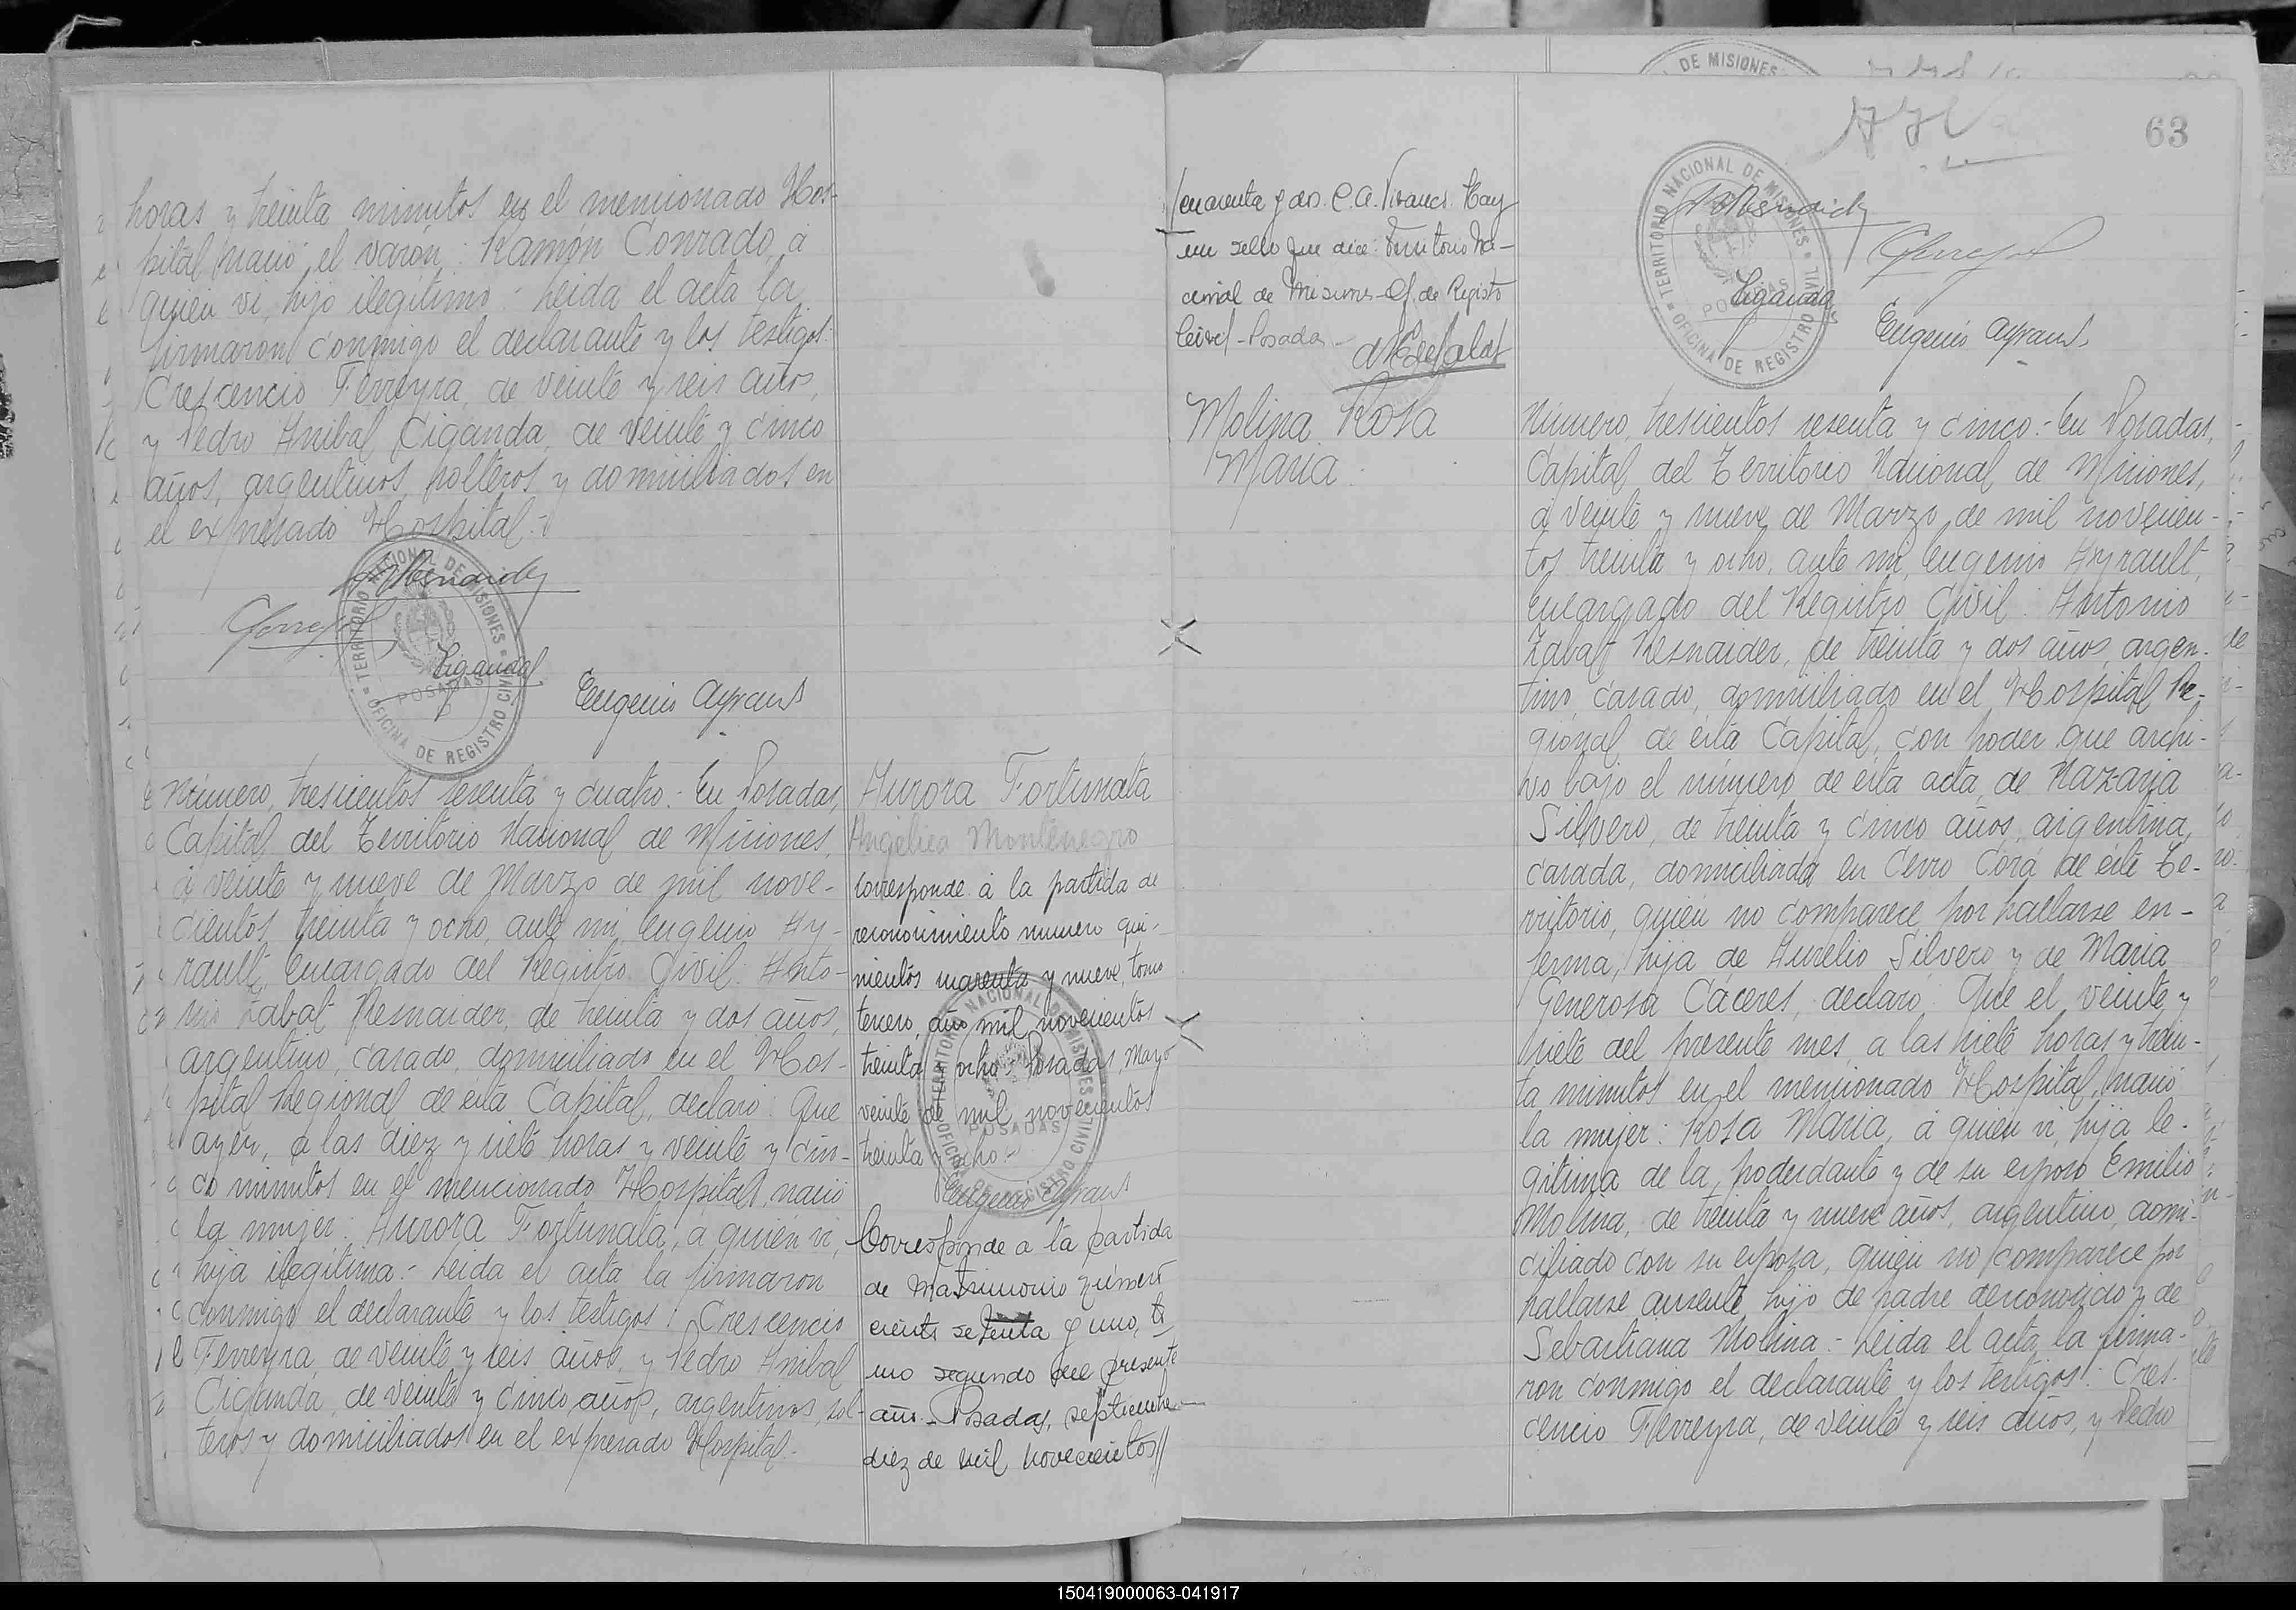 horas y treinta minutos en el mencionado Hos-
pital nació el varón: Ramón Conrado, a
quien vi, hijo ilegítimo.- Leida el acta la
firmaron conmigo el declarante y los testigos:
Crescencio Ferreyra, de veinte y seis años,
y Pedro Anibal Ciganda, de veinte y cinco
años, argentinos, solteros y domiciliados en
el expresado Hospital.-
TERRITORIO NACIONAL DE MISIONES
POSADAS
OFICINA DE REGISTRO CIVIL
Ciganda
Eugenio Ayrault
Número, trescientos sesenta y cuatro.- En Posadas,
Capital del Territorio Nacional de Misiones,
a veinte y nueve de Marzo de mil nove-
cientos treinta y ocho, ante mi, Eugenio Ay-
rault, Encargado del Registro Civil: Anto-
nio Labat Resnaider, de treinta y dos años,
argentino, casado, domiciliado en el Hos-
pital Regional de ésta Capital, declaró: Que
ayer, a las diez y siete horas y veinte y cin-
co minutos en el mencionado Hospital, nació
la mujer: Aurora Fortunata, a quien vi,
hija ilegítima.- Leida el acta la firmaron
conmigo el declarante y los testigos: Crescencio
Ferreyra, de veinte y seis años, y Pedro Anibal
Ciganda, de veinte y cinco años, argentinos, sol-
teros y domiciliados en el expresado Hospital.
Aurora Fortunata
Angélica Montenegro
Corresponde a la partida de
reconocimiento numero qui-
nientos cuarenta y nueve, tomo
tercero, año mil novecientos
treinta y ocho.- Posadas, Mayo
veinte de mil novecientos
treinta y ocho.-
TERRITORIO NACIONAL DE MISIONES
POSADAS
OFICINA DE REGISTRO CIVIL
Eugenio Ayrault
Corresponde a la partida
de Matrimonio número
ciento setenta y uno, to
mo segundo del presente
año.- Posadas, septiembre
diez de mil novecientos//
/cuarenta y dos. C.A. Vivanco. Hay
un sello que dice: Territorio Na-
cional de Misiones-Of. de Registro
Civil-Posadas.-
Molina Rosa
Maria.
DE MISIONES
63
TERRITORIO NACIONAL DE MISIONES
POSADAS
OFICINA DE REGISTRO CIVIL
Ciganda
Eugenio Ayrault
Número, trescientos sesenta y cinco.- En Posadas,
Capital del Territorio Nacional de Misiones,
a veinte y nueve de Marzo de mil novecien-
tos treinta y ocho, ante mi, Eugenio Ayrault,
Encargado del Registro Civil: Antonio
Labat Resnaider, de treinta y dos años, argen-
tino, casado, domiciliado en el Hospital Re-
gional de ésta Capital, con poder que archi-
vo bajo el número de ésta acta, de Nazaria
Silvero, de treinta y cinco años, argentina,
casada, domiciliada en Cerro Corá de éste Te-
rritorio, quien no comparece por hallarse en-
ferma, hija de Aurelio Silvero y de Maria
Generosa Cáceres, declaró: Que el veinte y
siete del presente mes, a las siete horas y trein-
ta minutos en el mencionado Hospital, nació
la mujer: Rosa Maria, a quien vi, hija le-
gítima de la poderdante y de su esposo Emilio
Molina, de treinta y nueve años, argentino, domi-
ciliado con su esposa, quien no comparece por
hallarse ausente, hijo de padre desconocido y de
Sebastiana Molina.- Leida el acta la firma-
ron conmigo el declarante y los testigos: Cres-
cencio Ferreyra, de veinte y seis años, y Pedro
150419000063-041917